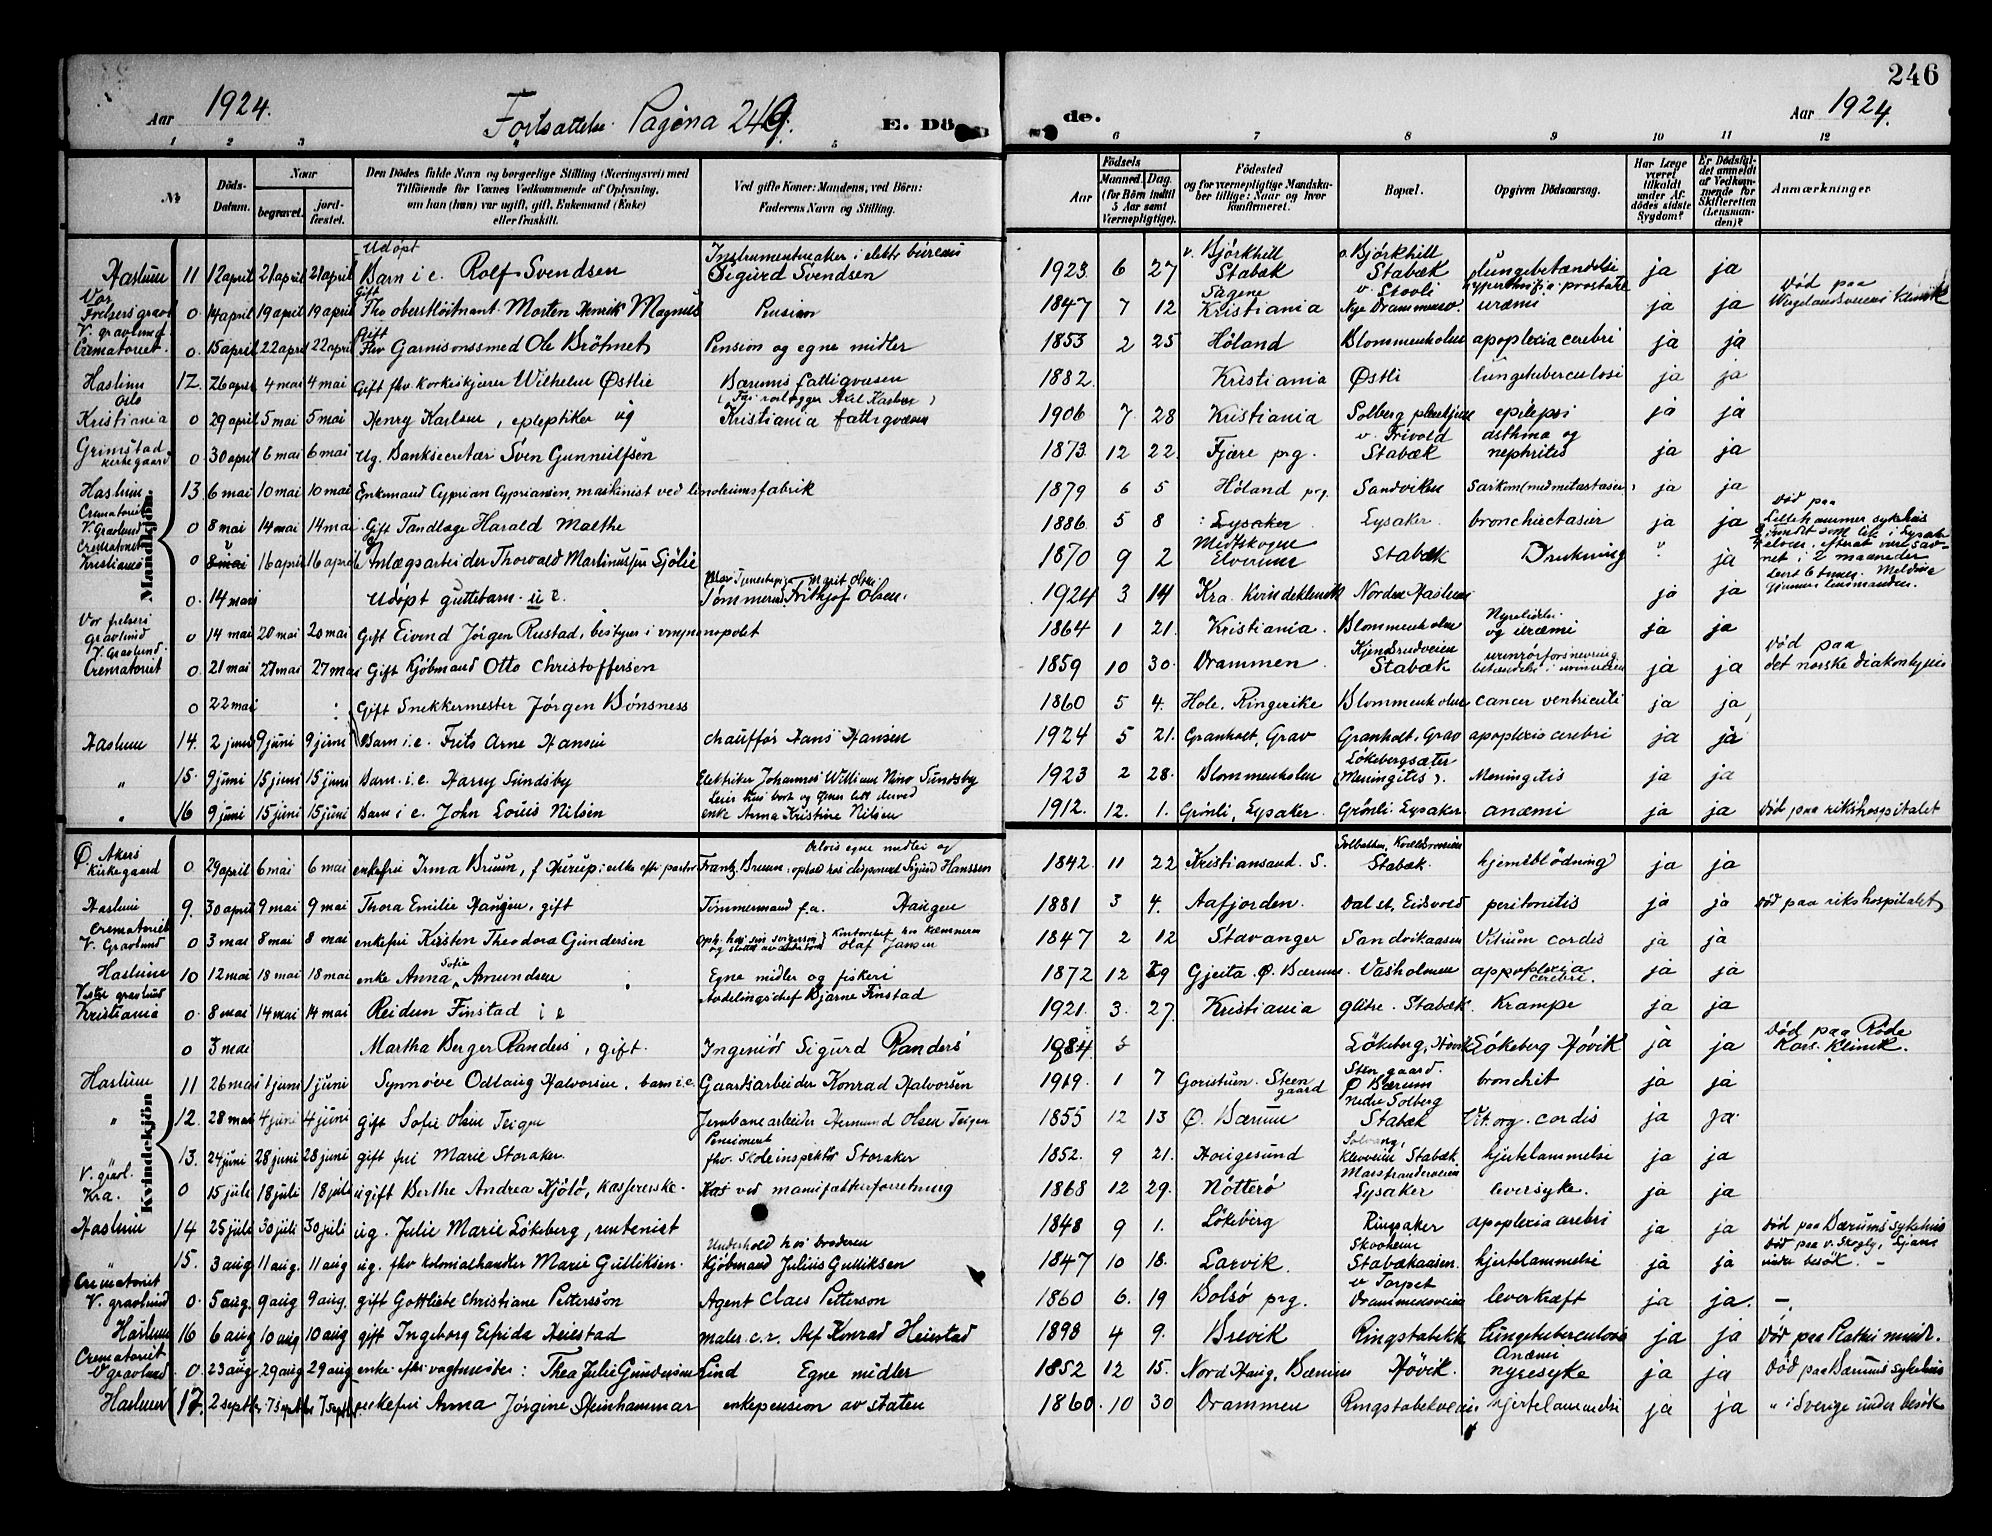 246
Aar 1924.
Fortsættelse Pagina 249.
E. Dö
de.
Aar 1924.
1 2 3 5 6 7 8 9 10 11 12
№
Döds-Datum.
Naar
begravet.
jord-fæstet.
Den Dödes fulde Navn og borgerlige Stilling (Næringsvei) med
Tilföiende for Voxnes Vedkommende af Oplysning,
om han (hun) var ugift, gift, Enkemand (Enke)
eller fraskilt.
Ved gifte Koner: Mandens, ved Börn:
Faderens Navn og Stilling.
Aar
Födsels
Maaned. Dag.
(for Börn indtil 5 Aar samt Værnepligtige).
Födested
og for værnepligtige Mandskaber tillige: Naar og hvor konfirmeret.
Bopæl.
Opgiven Dödsaarsag.
Har Læge været tilkaldt under Afdödes sidste Sygdom?
Er Dödsfaldet anmeldt af Vedkommende for Skifteretten (Lensmanden)?
Anmærkninger.
Mandkjön.
Haslum 11 12 april 21 april 21 april Udöpt Barn i e. Rolf Svendsen Instrumentmaker i elektr bureau Sigurd Svendsen 1923 6 27 v. Bjørkhill Stabæk v. Bjørkhill Stabæk lungebetændelse ja ja
Vor Frelsers gravl 0 14 april 19 april 19 april Gift Fhv oberstløitnant Morten Henrik Magnus Pension 1847 7 12 Sagene Kristiania v. Stovli Nye Drammensv. hypertrofia prostatæ uræmi ja ja Død paa Wergelandsveiens klinik
V. gravlund Crematoriet 0 15 april 22 april 22 april Gift Fhv Garnisonssmed Ole Brötmet Pension og egne midler 1853 2 25 Höland Blommenholm apoplexia cerebri ja ja
Haslum 12. 26 april 4 mai 4 mai Gift fhv. Korkeskjærer Wilhelm Østlie Bærums fattigvæsen 1882 Kristiania Østli lungetuberculosi ja ja
Oslo Kristiania 0 29 april 5 mai 5 mai Henry Karlsen, epileptiker ug Kristiania fattigvæsen 1906 7 28 Kristiania Solberg pleiehjem epilepsi ja ja
Grimstad kirkegaard 0 30 april 6 mai 6 mai Ug. Banksecretær Sven Gunnulfsen 1873 12 22 Fjære prg. v. Frivold Stabæk asthma og nephritis ja ja
Haslum 13 6 mai 10 mai 10 mai Enkemand Cyprian Cypriansen, maskinist ved linoleumsfabrik 1879 6 5 Höland prg. Sandviken Sarkom (med mitastaser) ja ja
Crematoriet V. Gravlund 0 8 mai 14 mai 14 mai Gift Tandlæge Harald Malthe 1886 5 8 Lysaker Lysaker bronchiectasier ja ja Død paa Lillehammer sykehus
Crematoriet Kristiania 0 8 mai 16 april 16 april Anlægsarbeider Thorvald Martinussen Sjölie 1870 9 2 Medskogen Elverum Stabæk Drukning " ja Fundet som lik i Lysakerelven, efterat vert savnet i 2 maaneder
0 14 mars Udöpt guttebarn u e. Tømmermand Frithjof Olsen. 1924 3 14 Kra. Kvindeklinik Nordre Haslum ja ja
Vor frelsers Gravlund 0 14 mai 20 mai 20 mai Gift Eivind Jörgen Rustad, bestyrer i vinmonopolet 1864 1 21. Kristiania. Blommenholm Nyrelidelse og uræmi ja ja
V. Gravlund. Crematoriet 0 21 mai 27 mai 27 mai Gift Kjöbmand Otto Christoffersen 1859 10 30 Drammen Stabæk ja ja Død paa det norske diakonhjem
0 22 mai Gift Snekkermester Jørgen Bönsness 1860 5 4. Hole, Ringerike Blommenholm cancer ventriculi ja ja
Haslum 14. 2 juni 9 juni 9 juni Barn i.e. Frits Arne Hansen chauffør Hans Hansen 1924 5 21. Granholt, Grav Granholt, Grav apoplexia cerebri ja ja
" 15. 9 juni 15 juni 15 juni Barn i.e. Harry Sundsby Elektriker Johannes William Nino Sundsby 1923 2 28. Blommenholm Løkebergsæter (Meningitis). Meningitis ja ja
" 16 9 juni 15 juni 15 juni Barn i e. John Louis Nilsen enke Anna Kristine Nilsen 1912. 12. 1. Grönli, Lysaker Grönli Lysaker anæmi ja ja Død paa rikshospitalet
Kvindekjön
Ø. Akers Kirkegaard 0 29 april 6 mai 6 mai enkefru Irma Bruun, f. Hiurup: enke efter pastor Frantz Bruun: Delvis egne midler og ophold hos disponent Sigurd Hanssen 1842. 11 22 Kristiansand. S. Stabæk hjerneblödning ja ja
Haslum 9. 30 april 9 mai 9 mai Thora Emilie Haugen, gift Tømmermand f.a. Haugen 1881 3 4. Aafjorden. Dal st, Eidsvold peritonitis ja ja Död paa rikshospitalet
Crematoriet V. Gravlund 0 3 mai 8 mai 8 mai enkefru Kirsten Theodora Gundersen Oph. hos sin svigersön Kontorchef hos Kæmneren Olaf Jansen 1847 2 12 Stavanger Sandvikaasen Vitium cordis ja ja
Haslum 10 12 mai 18 mai 18 mai enke Anna Sofie Amundsen Egne midler og fiskeri 1872 12 29 Gjeita. Ø. Bærum Vasholmen appoplexia cerebri. ja ja
Vestre gravlund Kristiania 0. 8 mai 14 mai 14 mai Reidun Finstad i e Avdelingschef Bjarne Finstad 1921. 3. 27. Kristiania glitre. Stabæk. Krampe ja ja
0 3 mai Martha Berger Randers, gift. Ingeniör Sigurd Randers 1984 Løkeberg, Høvik Løkeberg Høvik ja ja Død paa Røde Kors. Klinik.
Haslum 11 26 mai 1 juni 1 juni Synnøve Odlaug Halvorsen, barn i e. Gaardsarbeider Konrad Halvorsen 1919. 1 7 Goristuen. Steen gaard Sten gaard. Ø Bærum bronchit ja ja
" 12. 28 mai 4 juni 4 juni gift Sofie Olsen Teigen Jernbanearbeider Hermund Olsen Teigen 1855 12 13 Ø. Bærum Nedre Solberg Stabæk Vit. org. cordis ja ja
" 13. 24 juni 28 juni 28 juni gift fru Marie Storaker Pensionert fhv. Skoleinspektör Storaker 1852. 9 21. Haugesund Solvang, Klevveien Stabæk hjertelammelse ja ja
V. gravl. Kra. 0 15 juli 18 juli 18 juli ugift Berthe Andrea Hjölö, kassererske. Kas ved manufakturforretning 1868 12 29. Nötterö Maesstranderveien Lysaker leversyke. ja ja
Haslum 14 25 juli 30 juli 30 juli ug. Julie Marie Lökeberg, rentenist 1848 9 1. Lökeberg Ringsaker apoplexia cerebri ja ja död paa Bærums sykehus
" 15. 3 aug 11 aug. 11 aug ug. fhv kolonialhandler Marie Gulliksen. Underhold hos broderen Kjöbmand Julius Gulliksen 1847 10 18. Larvik. Skogheim Stabækaasen. hjertelammelse ja ja Död paa v. Skogly, Ljan under besök.
Crematoriet V. gravlund 0. 5 aug. 9 aug 9 aug. gift Gottliebe Christiane Pettersson Agent Claes Petterson 1860 6. 19 Bolsö prg. v Torpet Drammensveien leverkræft ja ja.
Haslum 16 6 aug 10 aug 10 aug gift Ingeborg Elfrida Heiestad maler. c. r. Alf Konrad Heiestad 1898 4 9. Brevik Ringstabekk Lungetuberculose ja ja Död paa
Crematoriet V. gravlund 0. 23 aug 29 aug 29 aug. enke efter vagtmester: Thea Julie Gundersen Lind Egne midler 1852 12 15. Nord Haug, Bærum Høvik Anæmi nyresyke ja ja Död paa Bærums sykehus
Haslum 17. 2 septbr 7 septbr 7 septbr enkefru Anna Jörgine Steinhammar enkepension av staten 1860. 10 30 Drammen Ringstabekveien hjertelammelse ja ja " i Sverige under besök